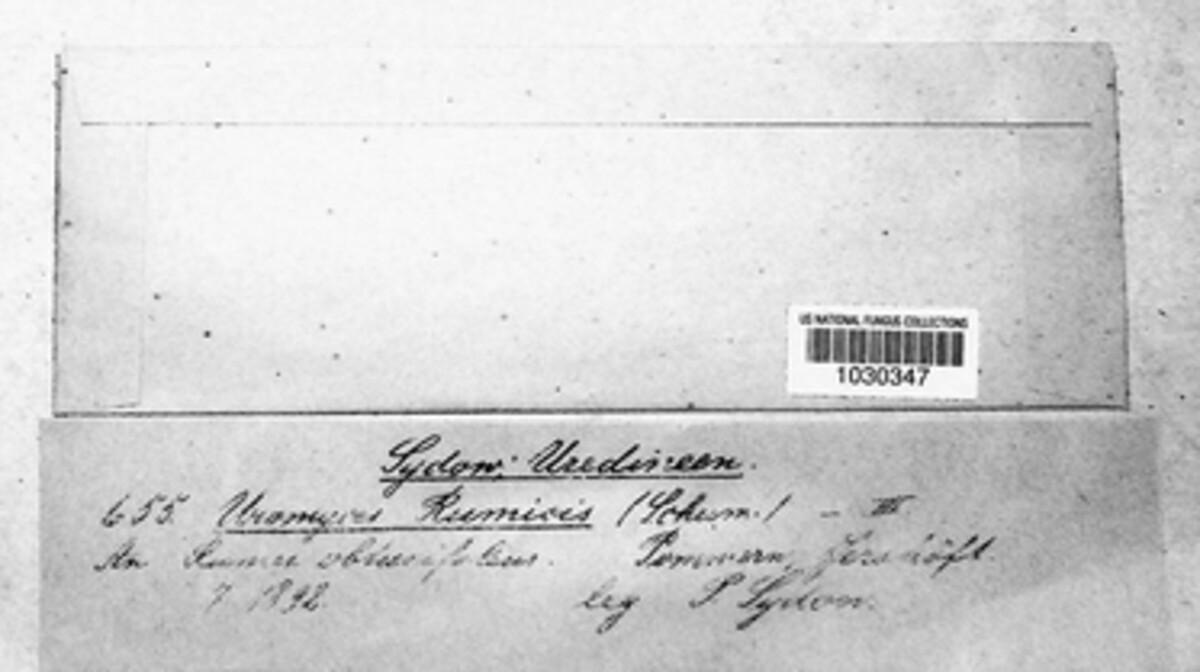 US NATIONAL FUNGUS COLLECTIONS
1030347
Sydow, Uredineen.
655. Uromyces Rumicis (Schum.) – III
An Rumex obtusifolius. Pommern,
7. 1892. leg P. Sydow.